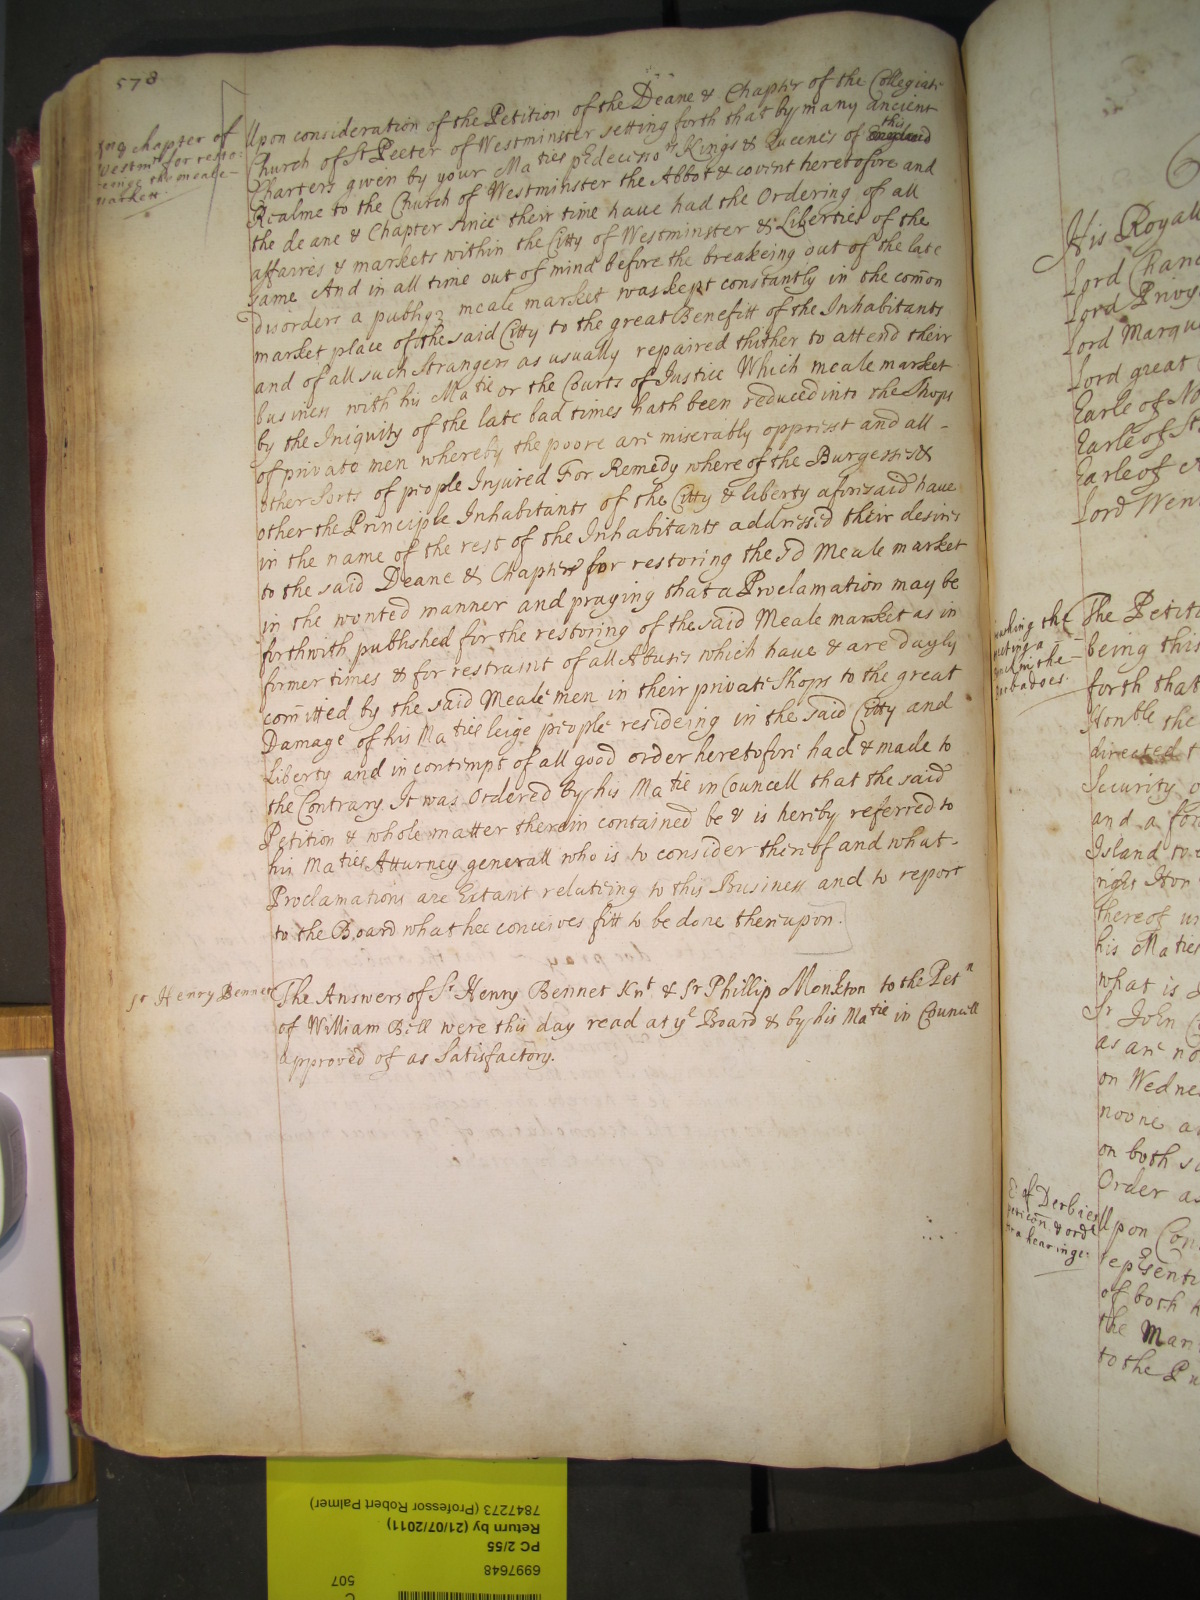 578
chapter of
westmr for resto:
reing the meale
markett
Upon consideration of the Petition of the Deane & Chapter of the Collegiate
Church of St Peeter of Westminster setting forth that by many ancient
Charters given by your Maties pdecessors Kings & Queenes of this
Realme to the Church of Westminster the Abbot & covent heretofore and
the deane & Chapter since their time haue had the Ordering of all
affaires & markets within the Citty of Westminster & Liberties of the
same And in all time out of mind before the breakeing out of the late
disorders a publiq meale market was kept constantly in the comon
market place of the said Citty to the great Benefitt of the Inhabitants
and of all such strangers as usually repaired thither to attend their
business with his Matie or the Courts of Justice Which meale market
by the Iniquity of the late bad times hath been reduced into the Shops
of private men whereby the poore are miserably opprest and all -
other Sorts of people Injured For Remedy whereof the Burgesses &
other the Principle Inhabitants of the Citty & liberty aforesaid have
in the name of the rest of the Inhabitants addressed their desires
to the said Deane & Chapter for restoring the sd Meale market
in the wonted manner and praying that a Proclamation may be
forthwith published for the restoring of the said Meale market as in
former times & for restraint of all Abuses which haue & are dayly
comitted by the said Meale men in their private Shops to the great
Damage of his Maties leige people resideing in the said Citty and
Liberty and in contempt of all good order heretofore had & made to
the Contrary. It was Ordered by his Matie in Councell that the said
Petition & whole matter therein contained be & is hereby referred to
his Maties Atturney generall who is to consider thereof and what -
Proclamations are Extant relateing to this Business and to report
to the Board what hee conceives fitt to be done thereupon.
Sr Henry Bennet
The Answers of Sr Henry Bennet Knt & Sr Phillip Monkton to the Petn
of William Bell were this day read at ye Board & by his Matie in Councell
approved of as Satisfactory.
His Royall
Lord Chanc
Lord Privy
Lord Marqu
Lord great
Earle of No
Earle of St
Earle of
Lord Wen
The Petiti
being this
forth that
Honble the
directed t
Security o
and a fou
Island to
right Hon
thereof un
his Maties
what is
Sr John C
as are no
on Wedne
noone a
on both s
Order as
E of Derbies
& ordr
for a hearinge:
Upon Con
repsenti
of both h
the Man
to the P
6997648
PC 2/55
Return by (21/07/2011)
7847273 (Professor Robert Palmer)
507